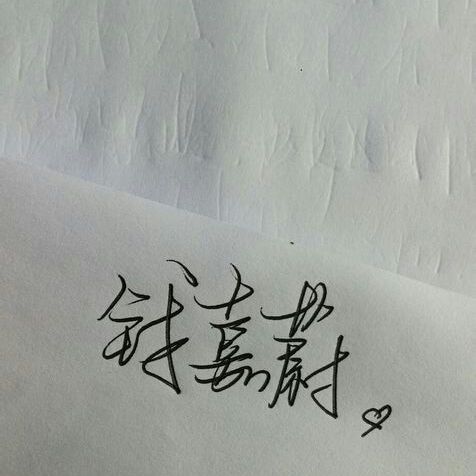 钱嘉蔚